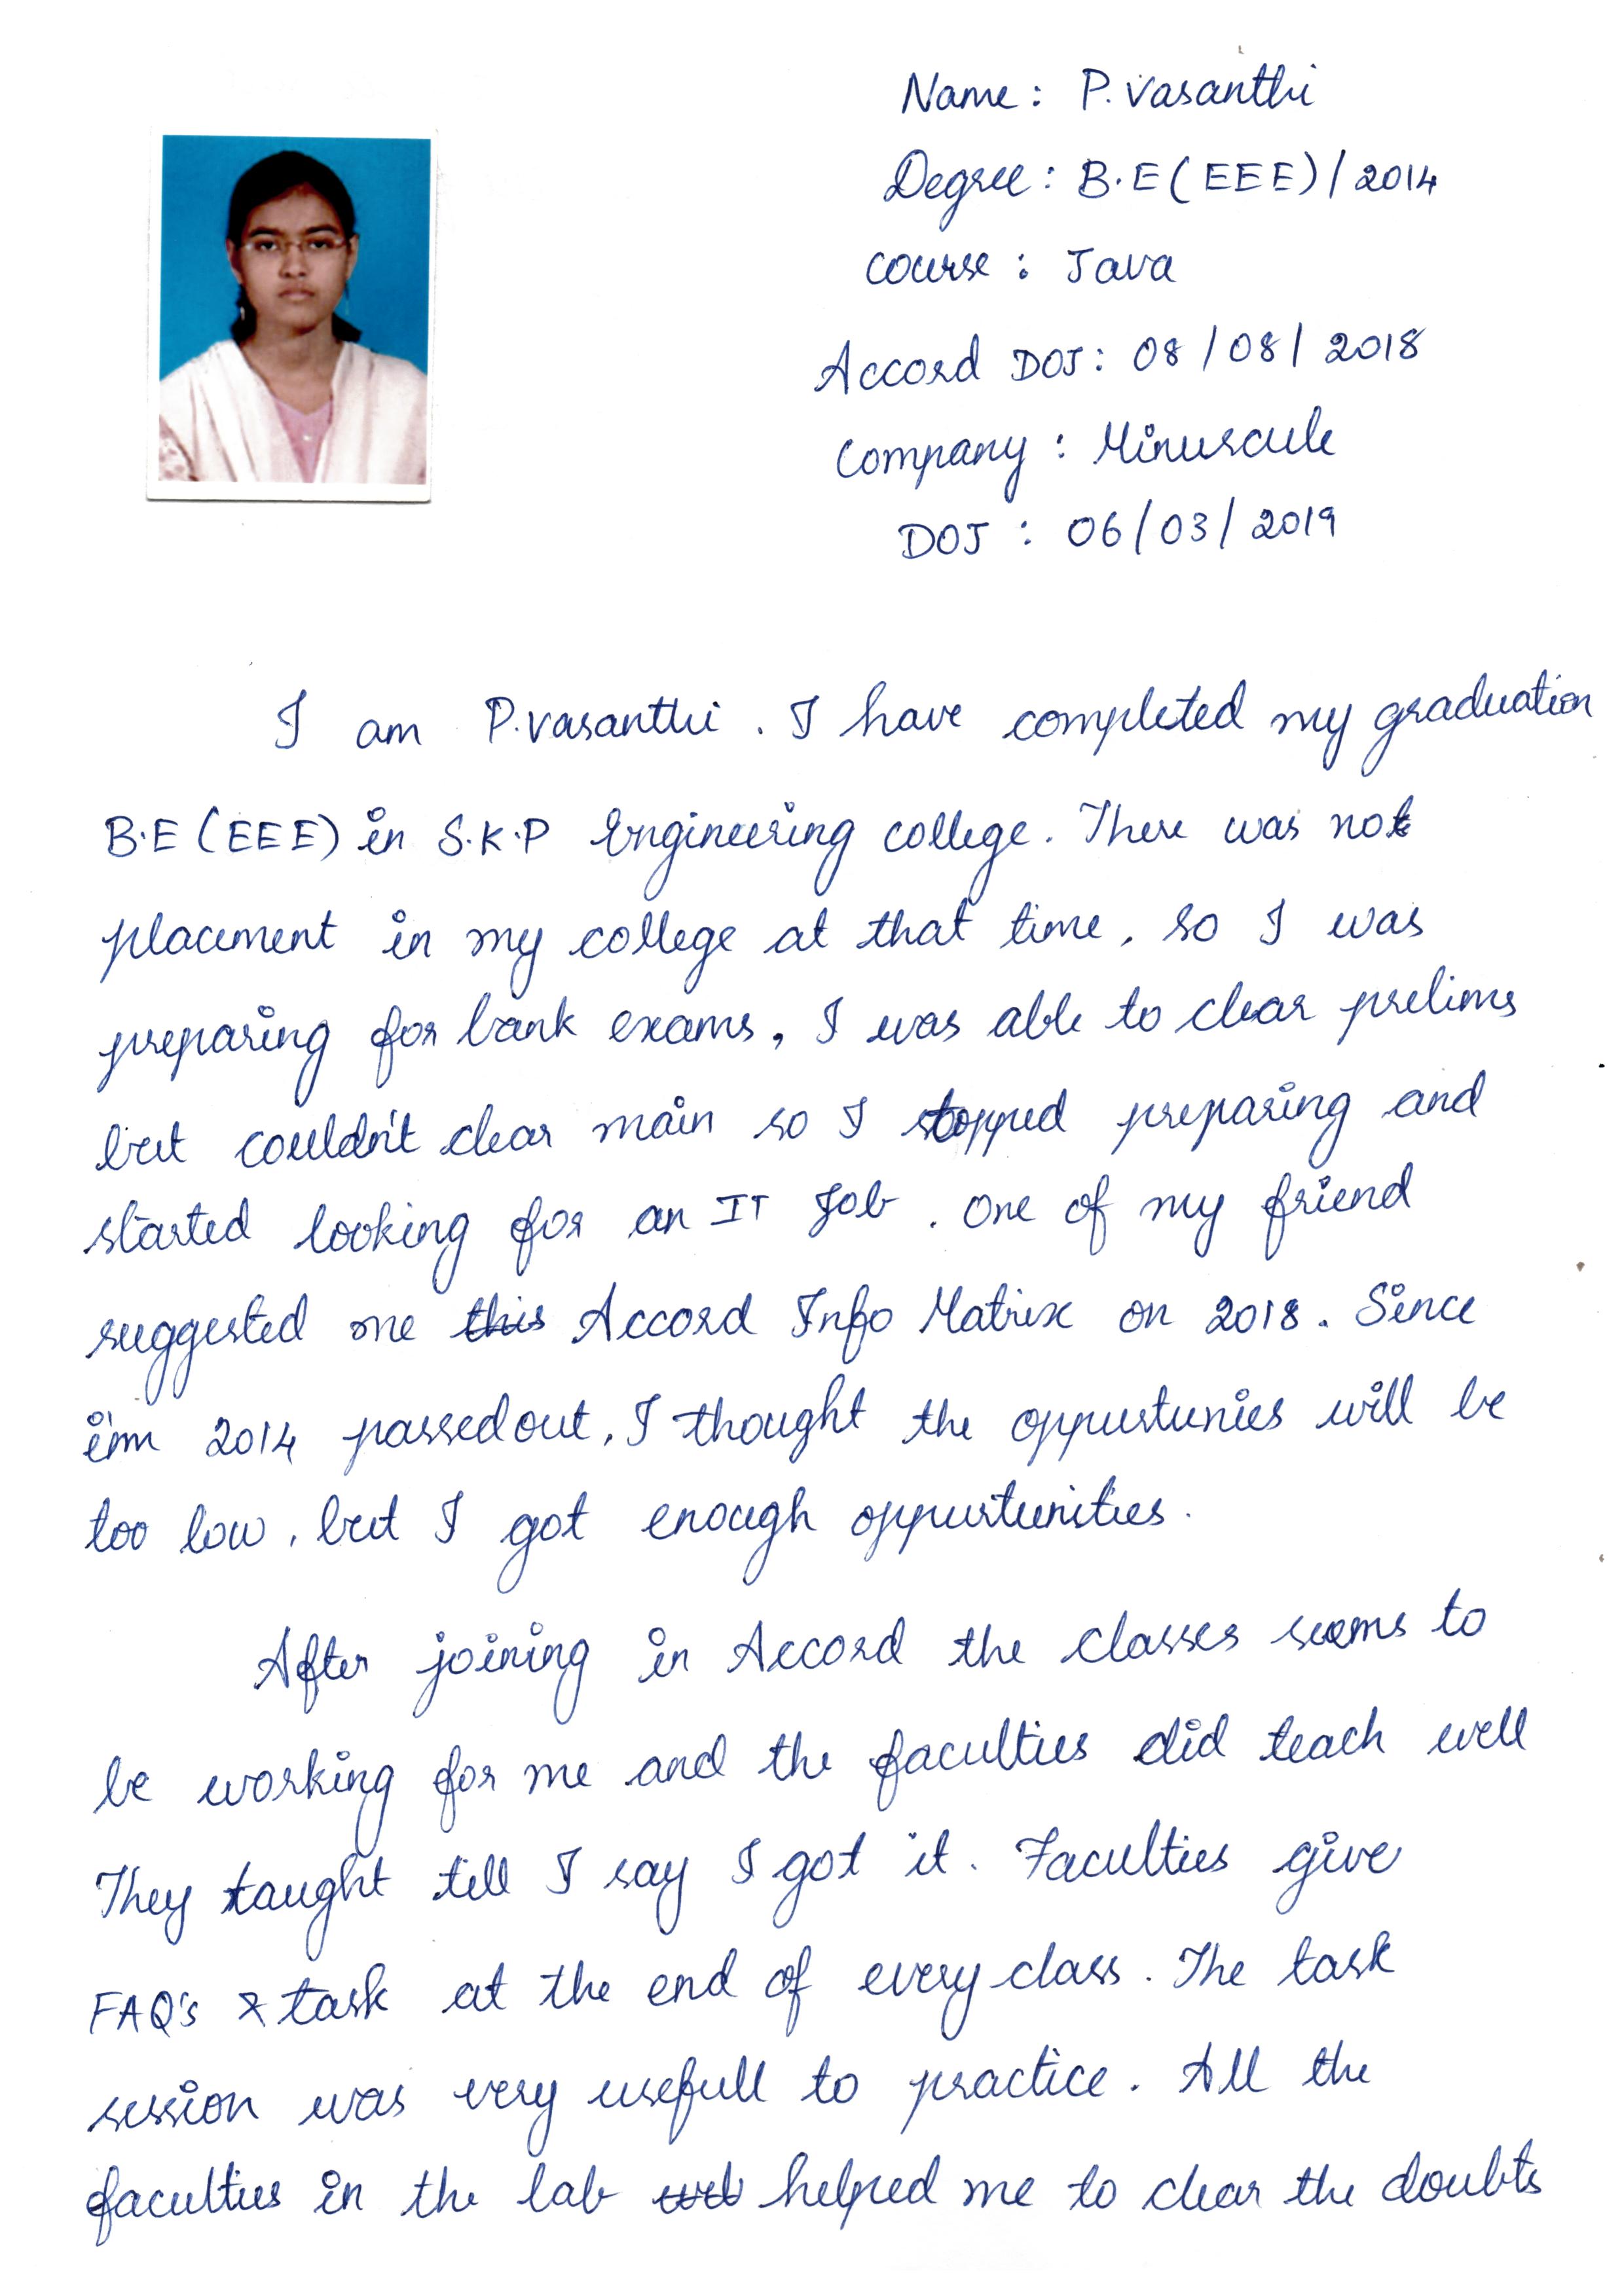 Name : P. Vasanthi
Degree : B.E ( EEE ) / 2014
Course : Java
Accord DOJ : 08 / 08 / 2018
Company : Minuscule
DOJ : 06 / 03 / 2019
I am P.Vasanthi . I have completed my graduation
B.E (EEE) in S.K.P Engineering college. There was not
placement in my college at that time, so I was
preparing for bank exams, I was able to clear prelims
but couldn't clear main so I stopped preparing and
started looking for an IT Job . One of my friend
suggested me this Accord Info Matrix on 2018. Since
i'm 2014 passedout, I thought the oppurtunies will be
too low, but I got enough oppurtunities.
After joining in Accord the classes seems to
be working for me and the faculties did teach well
They taught till I say I got it. Faculties give
FAQ's & task at the end of every class. The task
session was very usefull to practice. All the
faculties in the lab helped me to clear the doubts